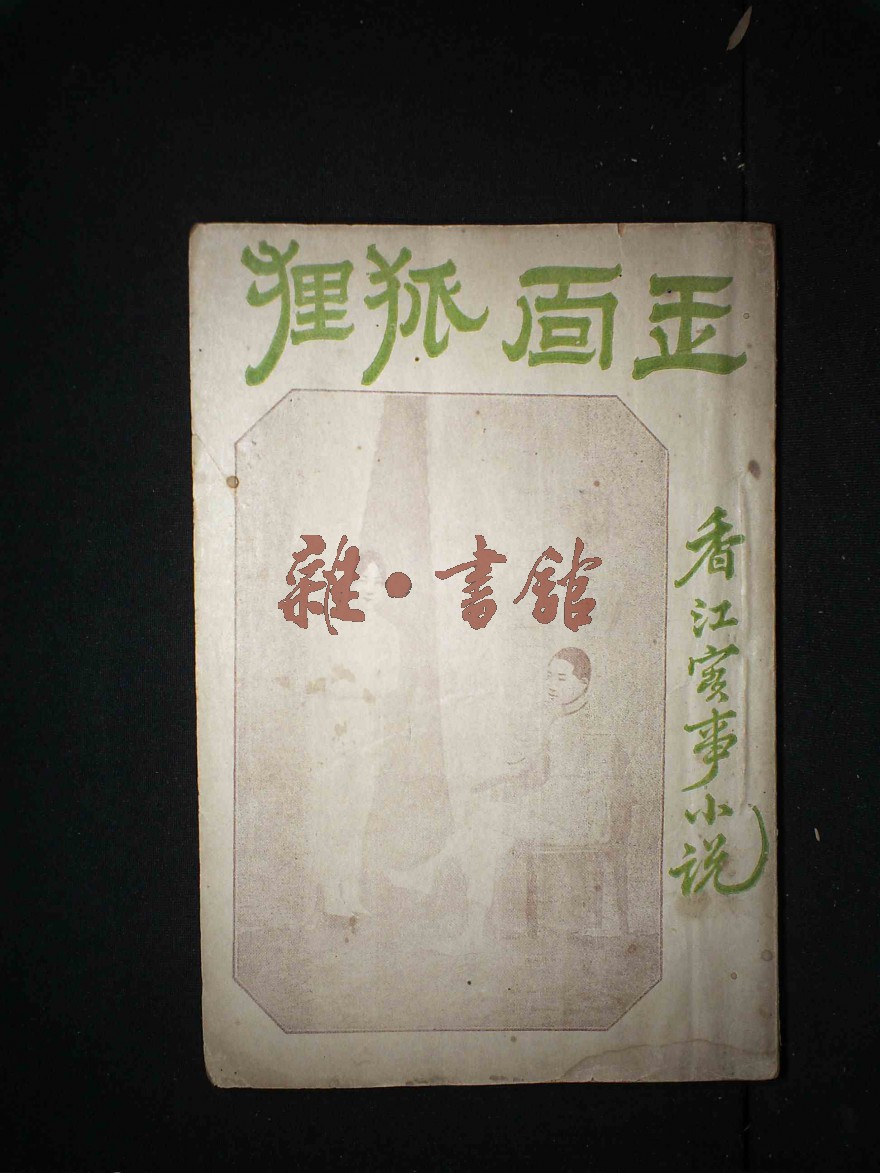 玉面狐狸
香江實事小說
雜·書館